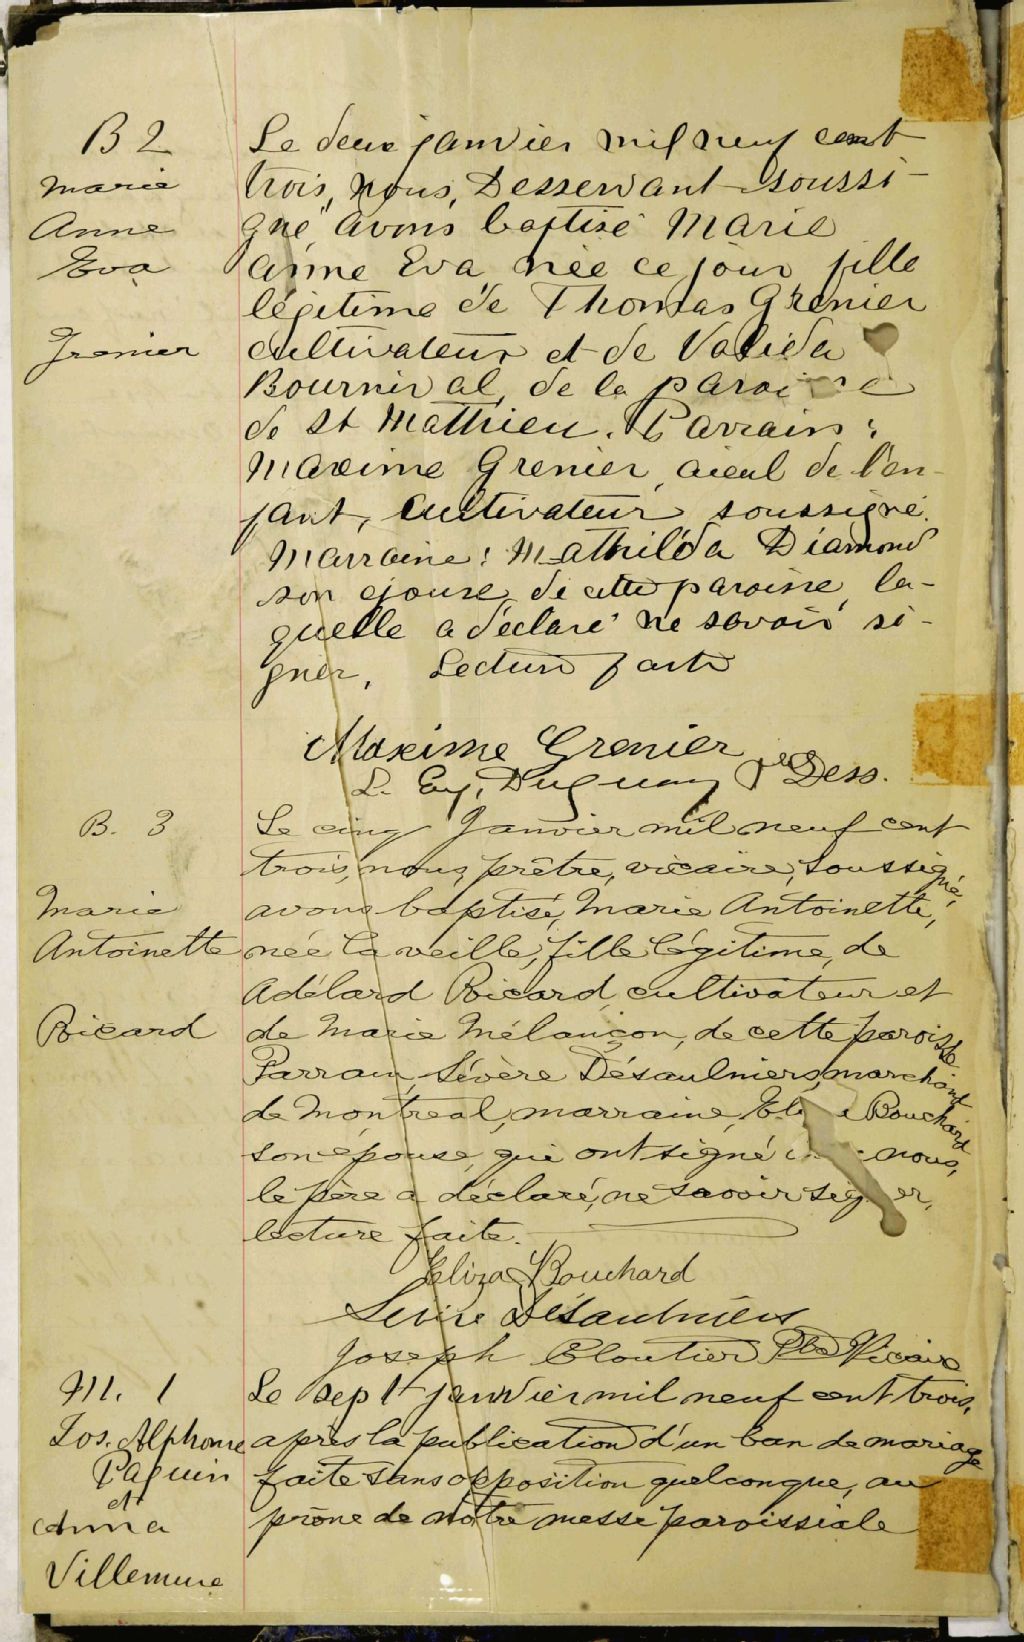 B 2
Marie
Anne
Eva
Grenier
Le deux janvier mil neuf cent
trois, nous, Desservant soussi-
gné avons baptisé Marie
Anne Eva née ce jour fille
légitime de Thomas Grenier
cultivateur et de Valida
Bournival, de la paroisse
de St Mathieu. Parrain:
Maxime Grenier, aieul de l'en-
fant, cultivateur soussigné.
Marraine: Mathilda Diamond
son epouse, de cette paroisse, la-
quelle a déclaré ne savoir si-
gner, Lecture faite
Maxime Grenier
L. Eug. Duguay Ptre Dess.
B. 3
Marie
Antoinette
Ricard
Le cinq Janvier mil neuf cent
trois, nous, prêtre, vicaire, soussigné,
avons baptisé, Marie Antoinette,
née la veille, fille légitime, de
Adélard Ricard, cultivateur et
de Marie Mélançon, de cette paroisse
Parrain, Sévère Désaulniers, marchand
de Montreal, marraine, Bouchard
son épouse, qui ont signé nous,
le père a déclaré, ne savoir signer,
lecture faite.
Eliza Bouchard
Sévère Désaulniers
Joseph Cloutier Ptre Vicaire
M. 1
Jos. Alphonse
Paquin
et
Anna
Villemure
Le sept janvier mil neuf cent trois,
après la publication d'un ban de mariage
faite sans opposition quelconque, au
prône de notre messe paroissiale